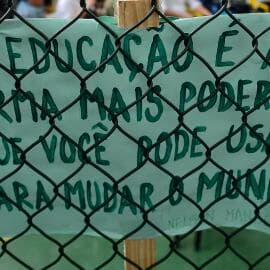 EDUCAÇÃO É A
RMA MAIS PODER
UE VOCÊ PODE USA
ARA MUDAR O MUN
NELSON MAN